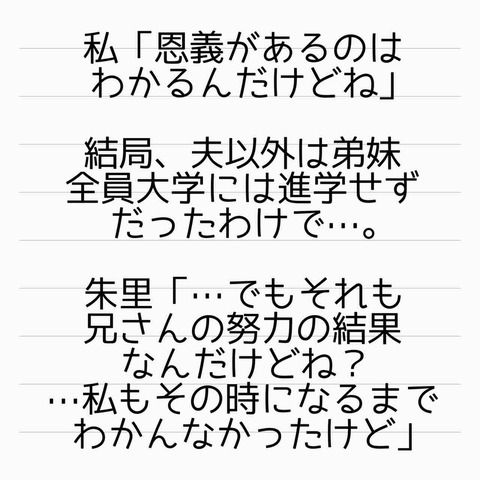 私「恩義があるのは
わかるんだけどね」
結局、夫以外は弟妹
全員大学には進学せず
だったわけで…。
朱里「…でもそれも
兄さんの努力の結果
なんだけどね？
…私もその時になるまで
わかんなかったけど」